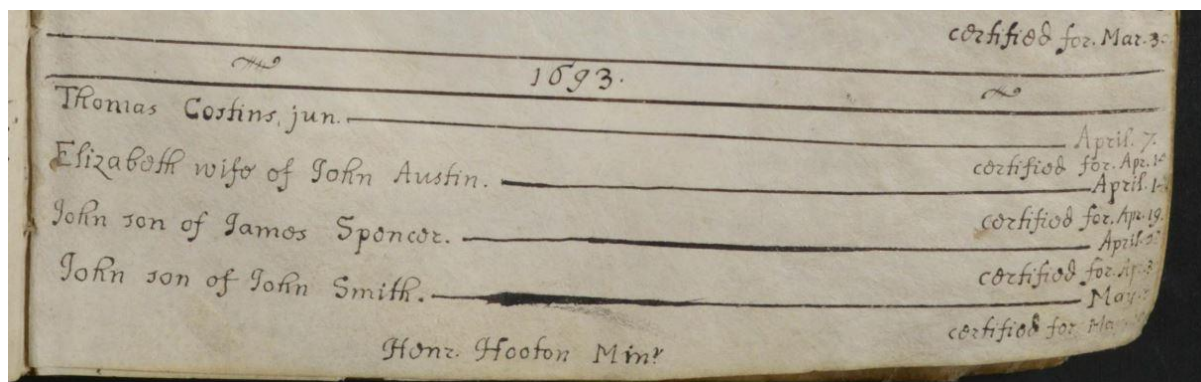 certified for. Mar. 3
1693.
Thomas Costins, jun. April. 7.
certified for. Apr. 1
Elizabeth wife of John Austin. April. 1
certified for. Apr. 19.
John son of James Spencer. April.
certified for. Ap. 3
John son of John Smith. May.
certified for
Henr. Hooton Minr